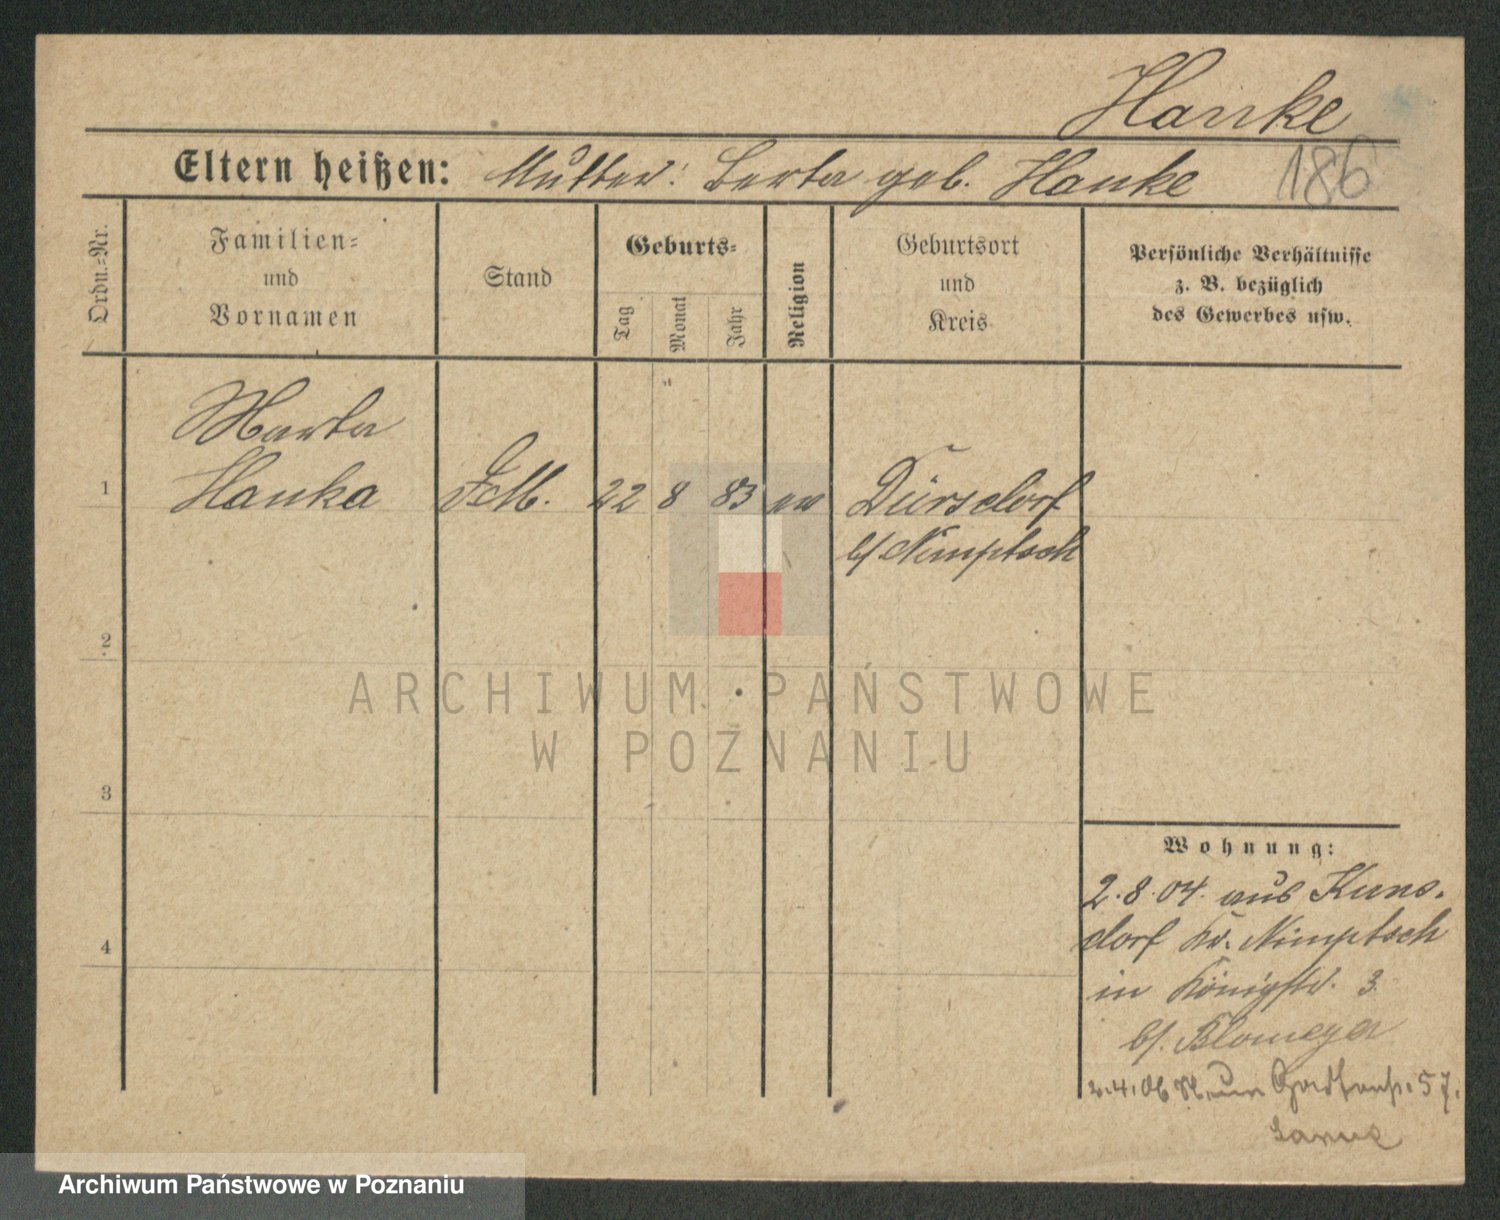 Hanke
Eltern heißen: Mutter: Berta geb. Hanke 186
Ordn.-Nr.
Familien-
und
Vornamen
Stand
Geburts-
Tag
Monat
Jahr
Religion
Geburtsort
und
Kreis
Persönliche Verhältnisse
z. B. bezüglich
des Gewerbes usw.
Marta
1 Hanka 22 8 83 ev Dürsdorf
b/ Nimptsch
2
3
4
ARCHIWUM PAŃSTWOWE
W POZNANIU
Wohnung:
2.8.04. aus Kuns-
dorf Kr. Nimptsch
in Königstr. 3.
b/. Blomeyer
2.4.06 57.
Archiwum Państwowe w Poznaniu